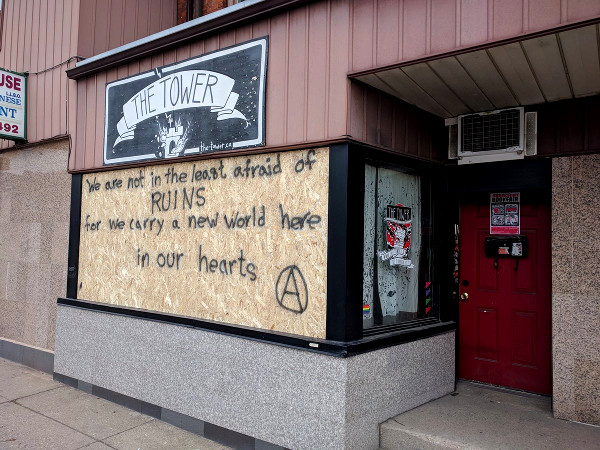 USE
NESE
NT
492
THE TOWER
the-tower.ca
We are not in the least afraid of
RUINS
for we carry a new world here
in our hearts
THE TOWER